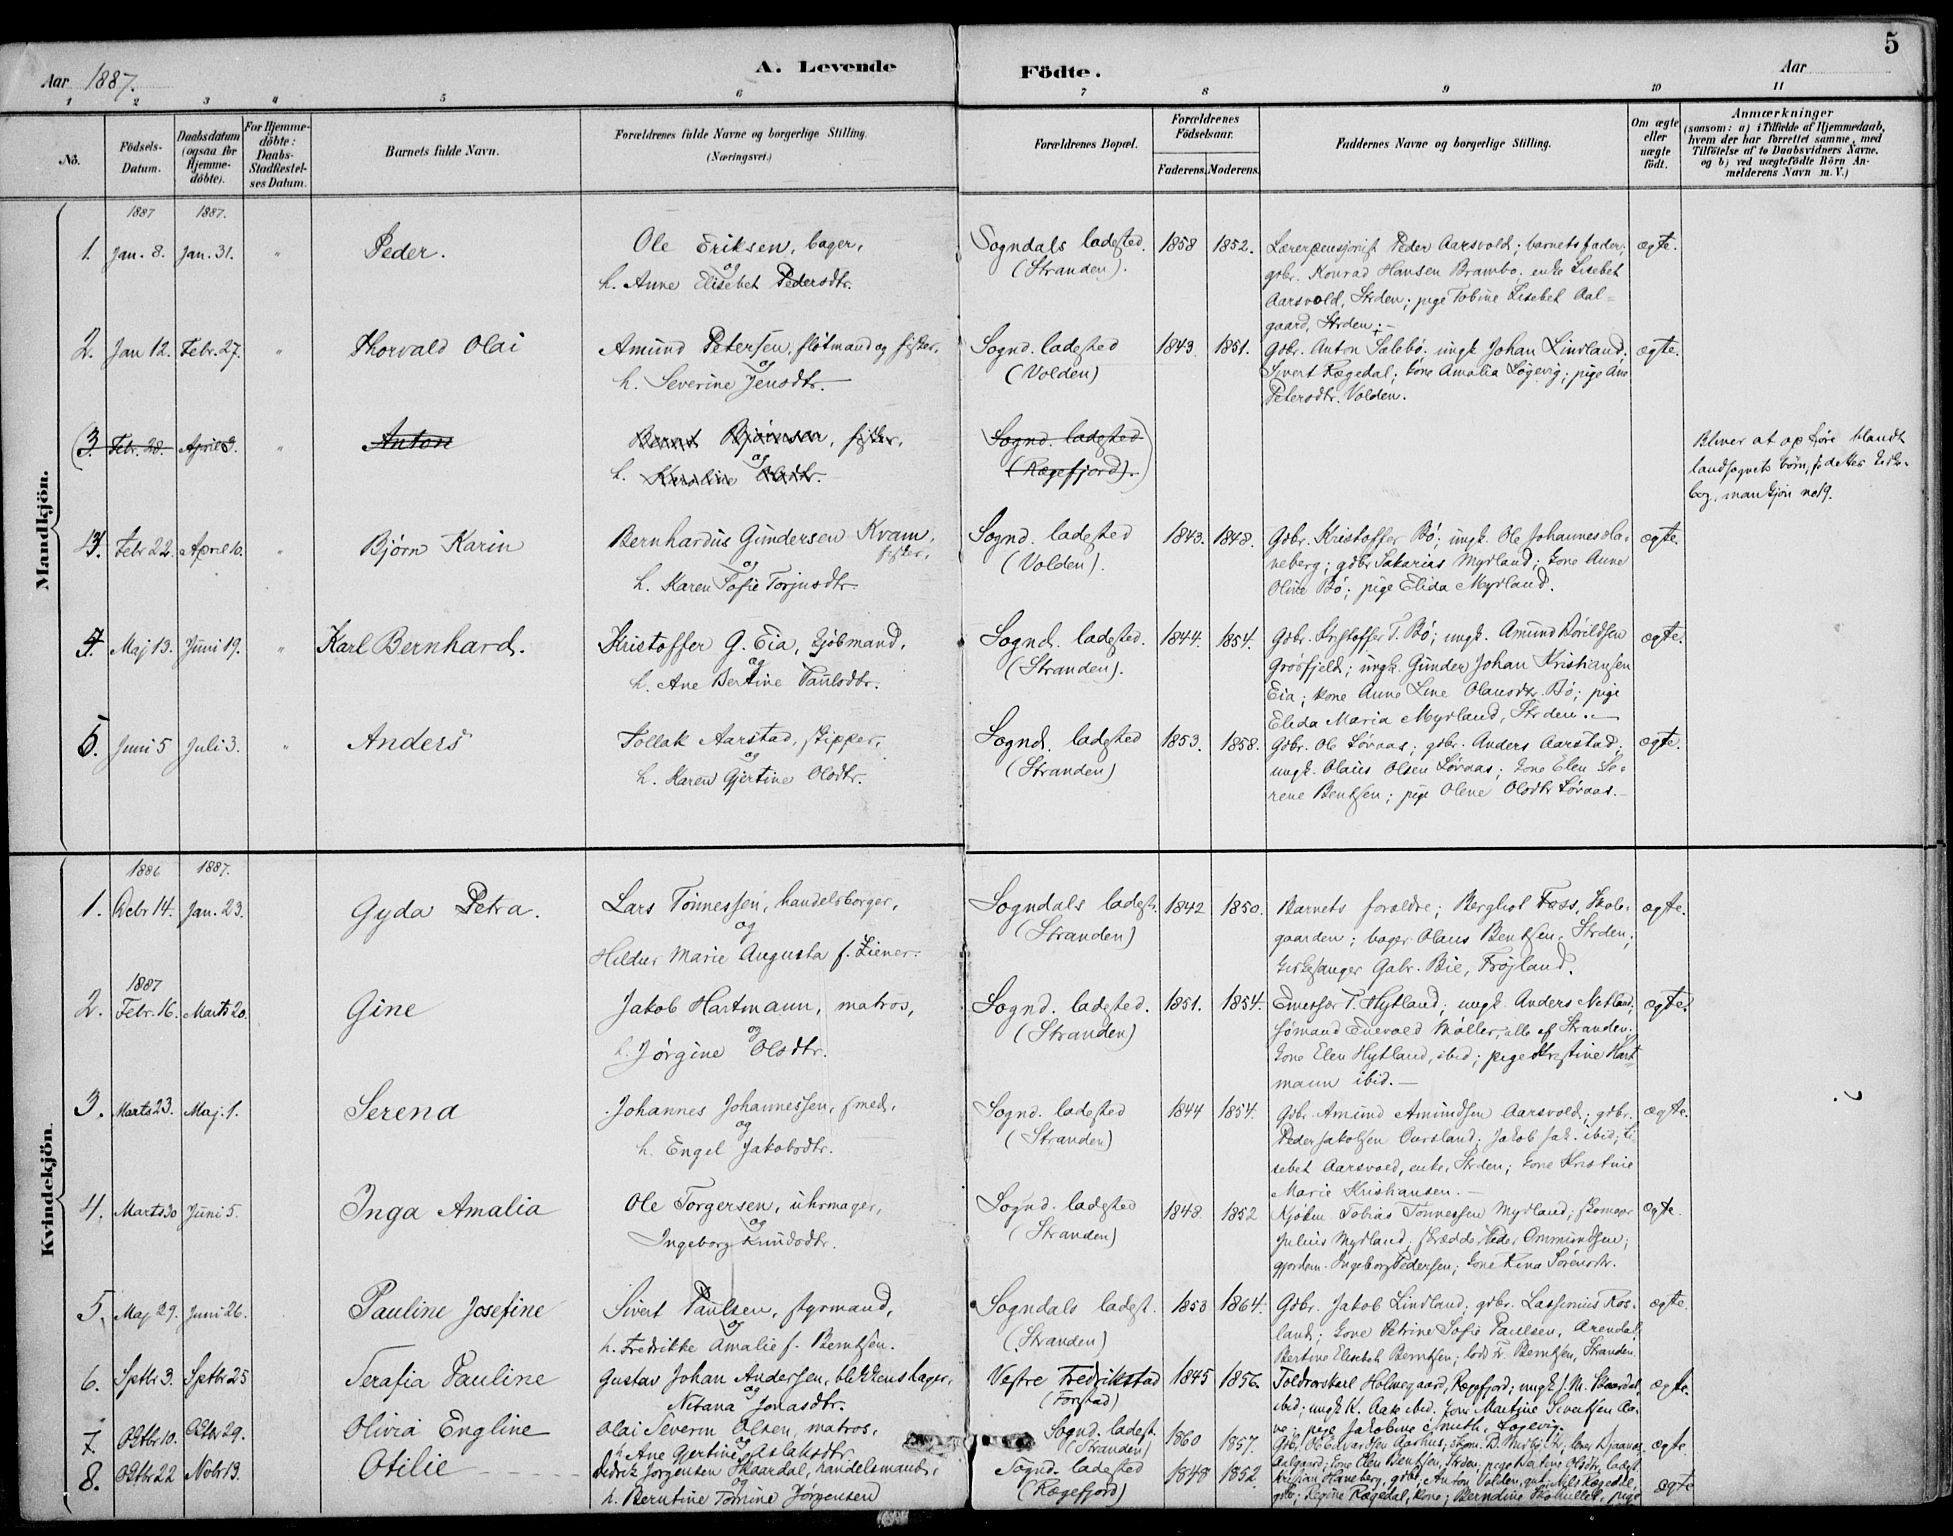 5
Aar 1887.
A. Levende Födte.
Aar
1 2 3 4 5 6 7 8 9 10 11
No.
Födsels-Datum.
Daabsdatum (ogsaa for Hjemme-döbte).
For Hjemme-döbte: Daabs-Stadfæstel-ses Datum.
Barnets fulde Navn.
Forældrenes fulde Navne og borgerlige Stilling. (Næringsvei.)
Forældrenes Bopæl.
Forældrenes Födselsaar.
Faderens. Moderens.
Faddernes Navne og borgerlige Stilling.
Om ægte eller uægte födt.
Anmærkninger
(saasom: a) i Tilfælde af Hjemmedaab,
hvem der har forrettet samme, med
Tilföielse af to Daabsvidners Navne,
og b) ved uægtefödte Börn An-
melderens Navn m. V.)
Mandkjön.
1887 1887.
1. Jan. 8. Jan. 31. " Peder. Ole Eriksen, bager, og h. Anne Elisebet Pedersdtr. Sogndals ladested. (Stranden). 1858 1852. ægte.
Lærerpensjonist Peder Aarsvold; barnets fader;
gbr. Konrad Hansen Brambo. enke Lisebet
Aarsvold, Strden; pige Tobine Lisebet Aal-
gaard, Strden.
2. Jan 12. Febr. 27. " Thorvald Olai Amund Petersen, flötmand og fisker, og h. Severine Jensdtr. Sognd. ladested (Volden) 1843. 1851. ægte.
Gbr. Anton Salebø. ungk. Johan Lindland.
Sivert Rægedal; kone Amalia Løgevig; pige Ane
Petersdtr. Volden.
(3. Febr. 28. April 3. " Anton Bernt Bjørnsen, fisker, og h. Karoline Olsdtr. Sognd. ladested (Rægefjord).)
Bliver at opføre blandt
landsognets börn,
bog, mankjön no 19.
3. Febr 22. April 10. " Bjørn Karin Bernhardus Gundersen Kvam, fisker, og h. Karen Sofie Torjusdtr. Sognd. ladested (Volden). 1843. 1848. ægte.
Gbr. Kristoffer Bø; ungk. Ole Johannes Ha-
neberg; gdbr Sakarias Myrland; kone Anne
Oline Bø; pige Elida Myrland.
4. Maj 13. Juni 19. " Karl Bernhard. Kristoffer G. Eia, kjöbmand, og h. Ane Bertine Paulsdtr. Sognd. ladested. (Stranden). 1844. 1854. ægte.
Gdbr. Kristoffer T. Bø; ungk. Amund
Grøsfjeld; ungk. Gunder Johan Kristiansen
Eia; kone Anne Line Olausdtr. Bø; pige
Elida Maria Myrland, Strden.
5. Juni 5 Juli 3. " Anders Tollak Aarstad, skipper, og h. Karen Gjertine Olsdtr. Sognd. ladested (Stranden) 1853. 1858. ægte.
Gdbr. Ole Løvaas; gdbr. Anders Aarstad;
ungk. Olaus Olsen Løvaas; kone Elen Se-
rene Bentsen; pige Olene Olsdtr Løvaas.
Kvindekjön.
1886 1887.
1. Debr 14. Jan. 23. Gyda Petra. Lars Tönnessen, handelsborger, og Hildur Marie Augusta f. Ziener. Sogndals ladest. (Stranden) 1842 1850. ægte.
Barnets forældre; Bergliot Foss, Skole-
gaarden; bager Olaus Bentsen, Strden;
kirkesanger Gabr. Bie, Frøjland.
1887
2. Febr. 16. Marts 20. Gine Jakob Hartmann, matros, og h. Jørgine Olsdtr. Sognd. ladested. (Stranden) 1851. 1854. ægte.
T. Hytland; ungk. Anders Netland;
sømand Enevold Møller, alle af Stranden;
kone Elen Hytland, ibid; pige Kristine Hart
mann ibid.
3. Marts 23. Maj. 1. Serena Johannes Johannessen, smed, og h. Engel Jakobsdtr. Sognd. ladested (Stranden) 1844 1854. ægte.
Gdbr. Amund Amundsen Aarsvold; gdbr.
Peder Jakobsen Oursland; Jakob Jak. ibid; Li-
sebet Aarsvold, enke, Strden; kone Kristine
Marie Kristiansen.
4. Marts 30 Juni 5. Inga Amalia Ole Torgersen, uhrmager, og Ingeborg Knudsdtr. Sognd. ladested (Stranden) 1848. 1852 ægte.
Kjøbm. Tobias Tönnessen Myrland; skomager
Julius Myrland; skrædder Peder Ommundsen;
gjordem. Ingeborg Pedersen; kone Kina Sörensdtr.
5. Maj 29. Juni 26. Pauline Josefine Sivert Paulsen, styrmand, og h. Fredrikke Amalie f. Berntsen. Sogndals ladest. (Stranden) 1853 1864. ægte.
Gdbr. Jakob Lindland; gdbr. Ros-
land; kone Petrine Sofie Paulsen, Arendal;
Bertine Elisebet Berntsen; Berntsen, Stranden.
6. Septbr 3. Septbr 25 Serafia Pauline Gustav Johan Andersen, blikkenslager, og Nitana Jonasdtr. Vestre Fredrikstad (Forstad) 1845 1856. ægte.
Toldroerskarl Holmegaard, Rægefjord; ungk. J. M. Skaardal
ibid; ungk K. Aase ibid. kone Martine Sivertsen
pige Jakobine Smith, Løgevig.
7. Oktbr 10. Oktbr 29. Olivia Engline Olai Severin Olsen, matros, og h. Ane Gertine Aslaksdtr. Sognd. ladest. (Stranden) 1860 1857. ægte
Gdbr. Ole Edvardsen Aarhus;
Aalgaard; kone Elen Bentsen, Strden; pige Bertine Olsdtr, ladest
8. Oktbr 22 Novbr 13. Otilie Didrik Jørgensen Skaardal, handelsmand, og h. Berntine Tomine Jørgensen Sognd. ladested (Rægefjord) 1848 1852. ægte
Kristian Haneberg, gdbr; Anton Volden, Nils Rægedal,
gdbr; Regine Rægedal, kone; Berndine pige